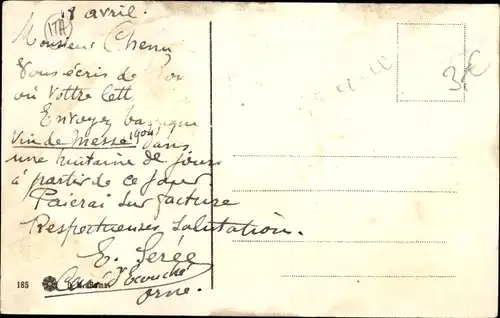 8 avril.
ITA
Monsieur Cheruy
Vous écris de
où Vottre lett
Envoyez barrique
Vin de messe 1904 dans
une huitaine de jours
à partir de ce jour.
Paierai sur facture
Respectueuses Salutation.
E. Serée
Curé d'Ecouché
Orne.
185
3.€